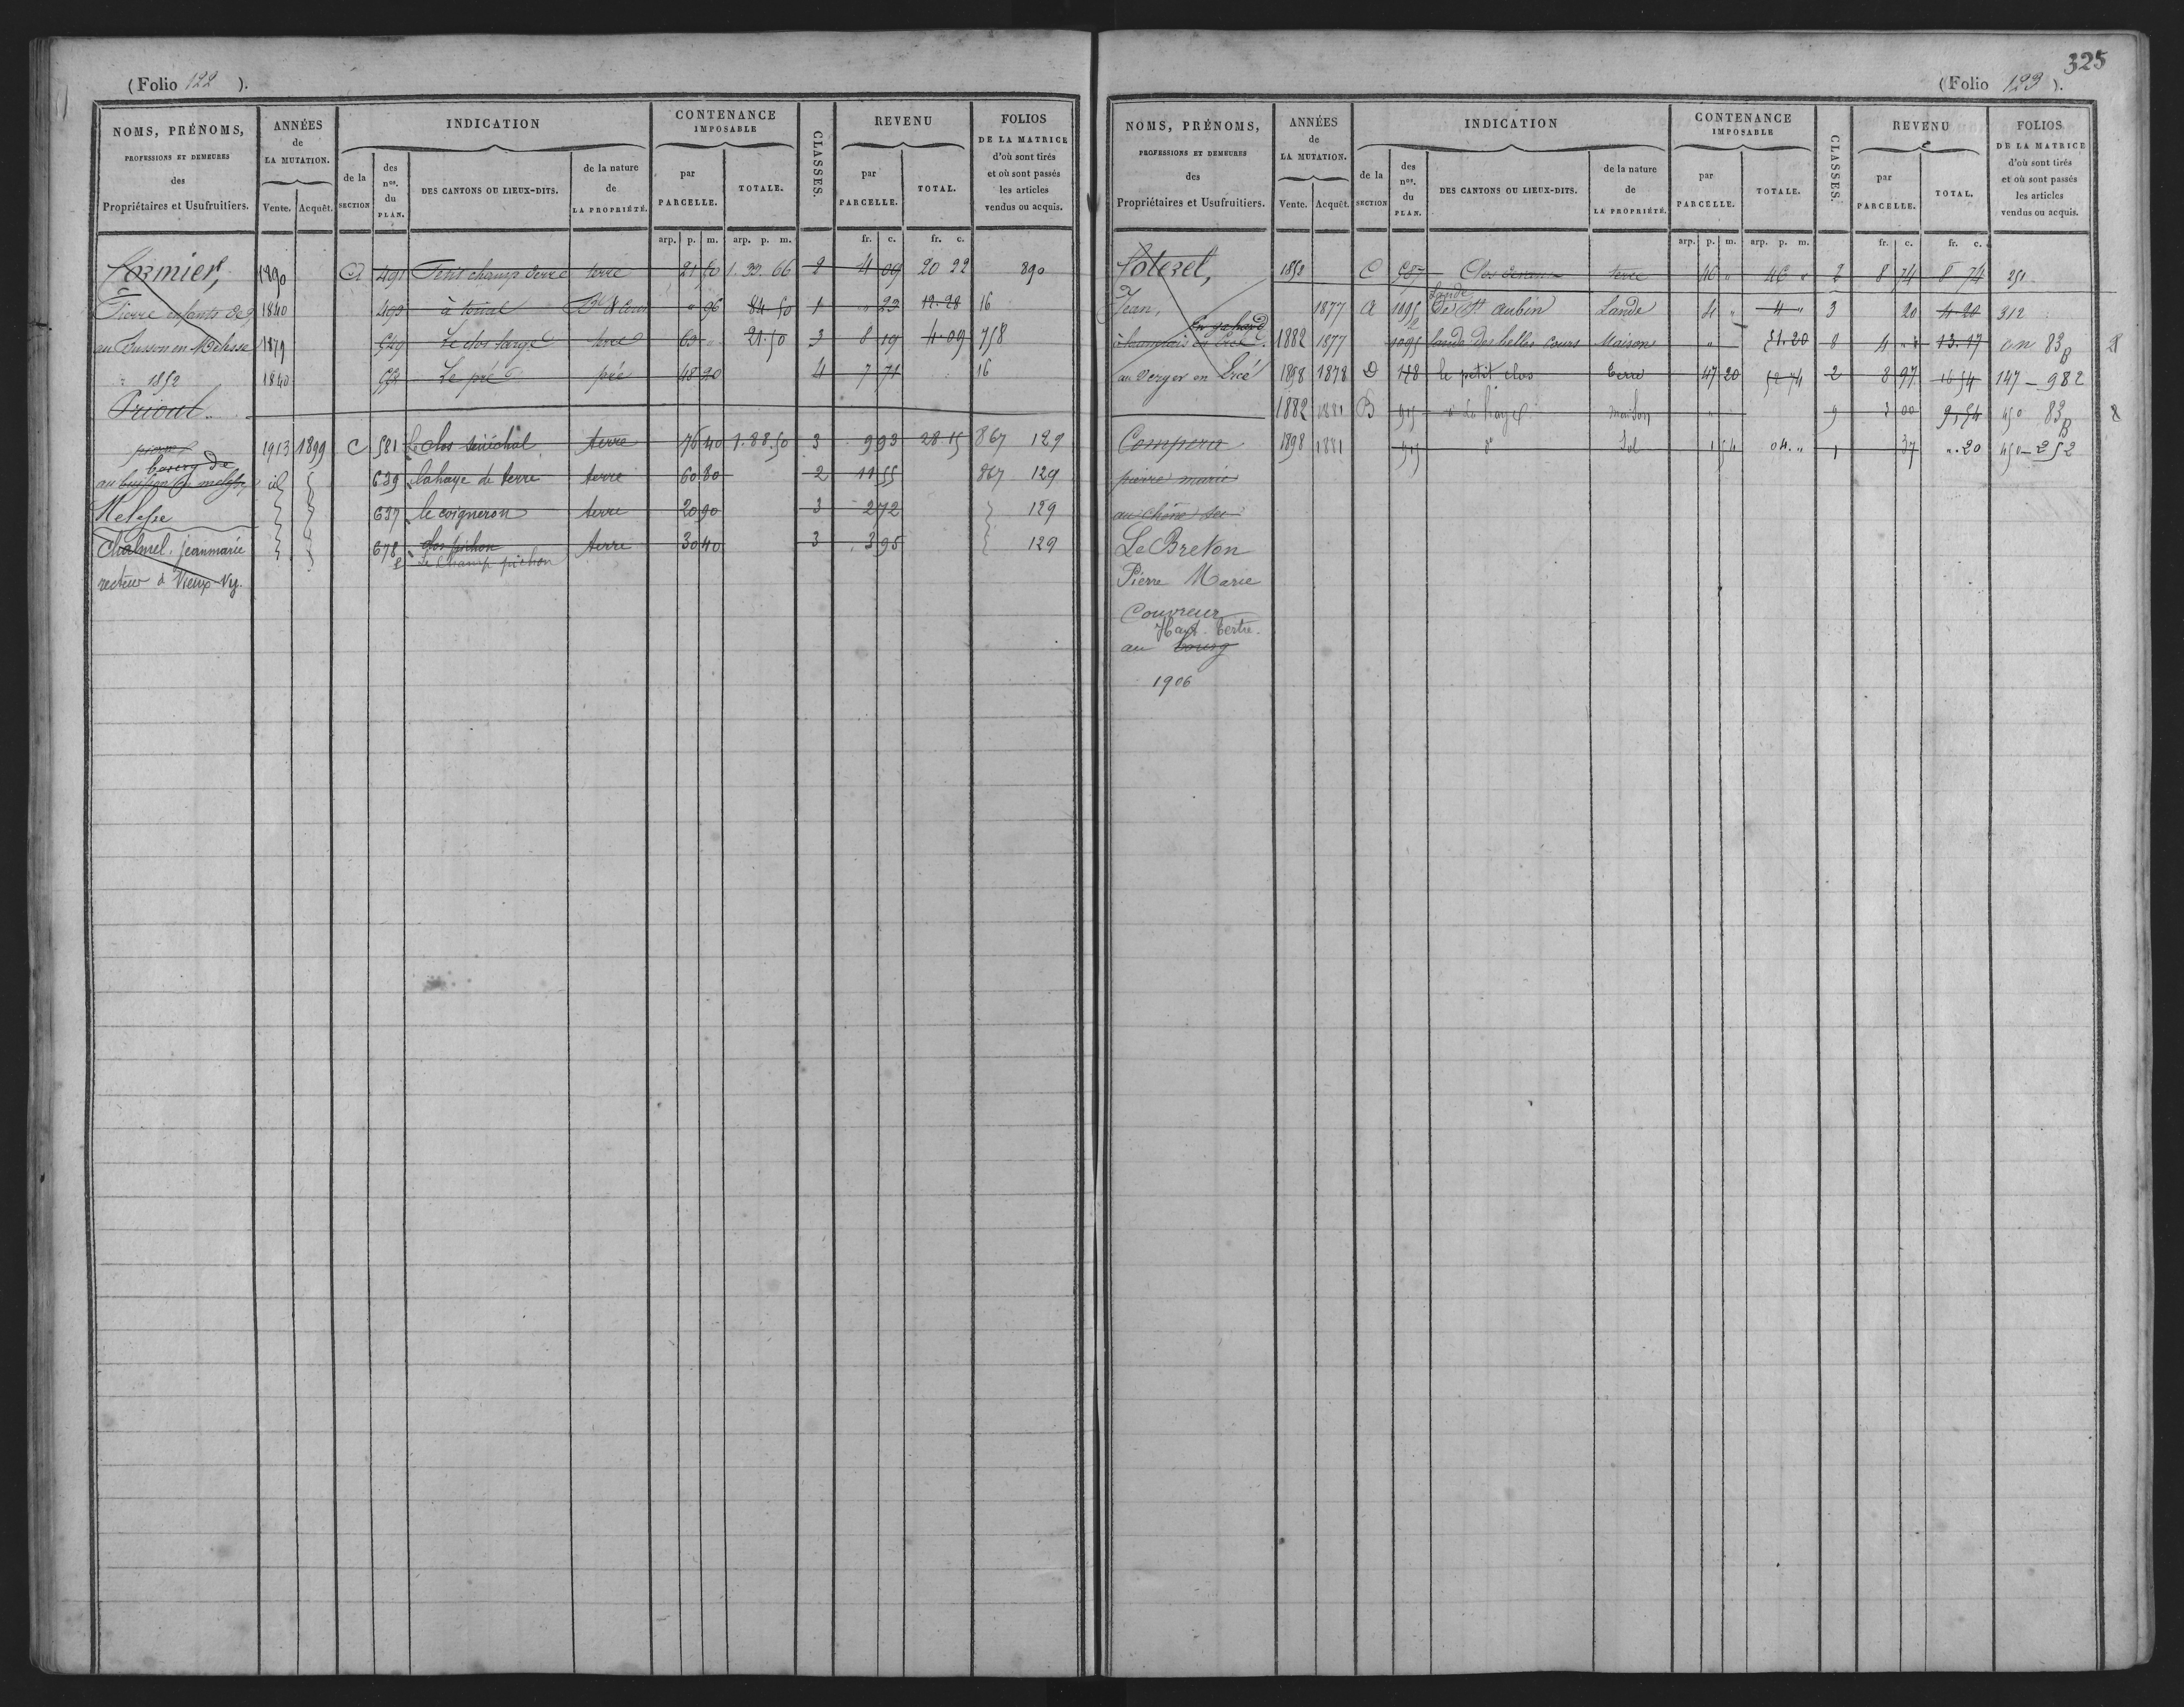 325
(Folio 122 ).
NOMS, PRÉNOMS,
PROFESSIONS ET DEMEURES
des
Propriétaires et Usufruitiers.
ANNÉES
de
LA MUTATION.
Vente. Acquêt.
INDICATION
de la
SECTION
des
nos.
du
PLAN.
DES CANTONS OU LIEUX-DITS.
de la nature
de
LA PROPRIÉTÉ.
CONTENANCE
IMPOSABLE
par
PARCELLE.
TOTALE.
CLASSES.
REVENU
par
PARCELLE.
TOTAL.
FOLIOS
DE LA MATRICE
d'où sont tirés
et où sont passés
les articles
vendus ou acquis.
arp. p. m. arp. p. m. fr. c. fr. c.
1890 491 Petit champ terre 21 50 1. 33. 66 2 4 09 20 22 890
Pierre enfants de 1840 493 96 84 50 1 " 23 12. 28 16
1879 549 Le clos large terre 63 " 21. 50 3 8 19 4. 09 758
1852 1840 Le pré pré 48 20 4 7 71 16
Prioul
1913 1899 C 581 Le clos sénéchal terre 76 40 1. 88. 50 3 9 93 28. 15 867 129
bourg de
639 lahaye de terre terre 60 80 2 11 55 867 129
Melesse 637 le coigneron terre 20 90 3 2 72 129
Chalmel, jeanmarie 678 clos pichon terre 30 40 3 3 95 129
Le Champ pichon
recteur à Vieux-Vy.
(Folio 123 ).
NOMS, PRÉNOMS,
PROFESSIONS ET DEMEURES
des
Propriétaires et Usufruitiers.
ANNÉES
de
LA MUTATION.
Vente. Acquêt.
INDICATION
de la
SECTION
des
nos.
du
PLAN.
DES CANTONS OU LIEUX-DITS.
de la nature
de
LA PROPRIÉTÉ.
CONTENANCE
IMPOSABLE
par
PARCELLE.
TOTALE.
CLASSES.
REVENU
par
PARCELLE.
TOTAL.
FOLIOS
DE LA MATRICE
d'où sont tirés
et où sont passés
les articles
vendus ou acquis.
arp. p. m. arp. p. m. fr. c. fr. c.
1853 C 587 terre 46 " 46 " 2 8 74 8 74 251
Lande
Jean, 1877 A 1095 de St aubin Lande 4 " 4 " 3 20 4 20 312
en gahard
1882 1877 1095 lande des belles cours Maison " 51. 20 8 4 " 13. 17 83 B 28
au verger en Lieé 1898 1878 D 178 le petit clos terre 47 20 52 74 2 8 97 16 54 147 - 982
1882 1881 B 915 maison " 9 3 00 9, 54 450 83 B 8
Compere 1898 1881 915 do Sol 1 54 04. " 1 37 ". 20 450 - 252
pierre marie
au chêne sec
Le Breton
Pierre Marie
Couvreur
Haut Tertre.
au bourg
1906